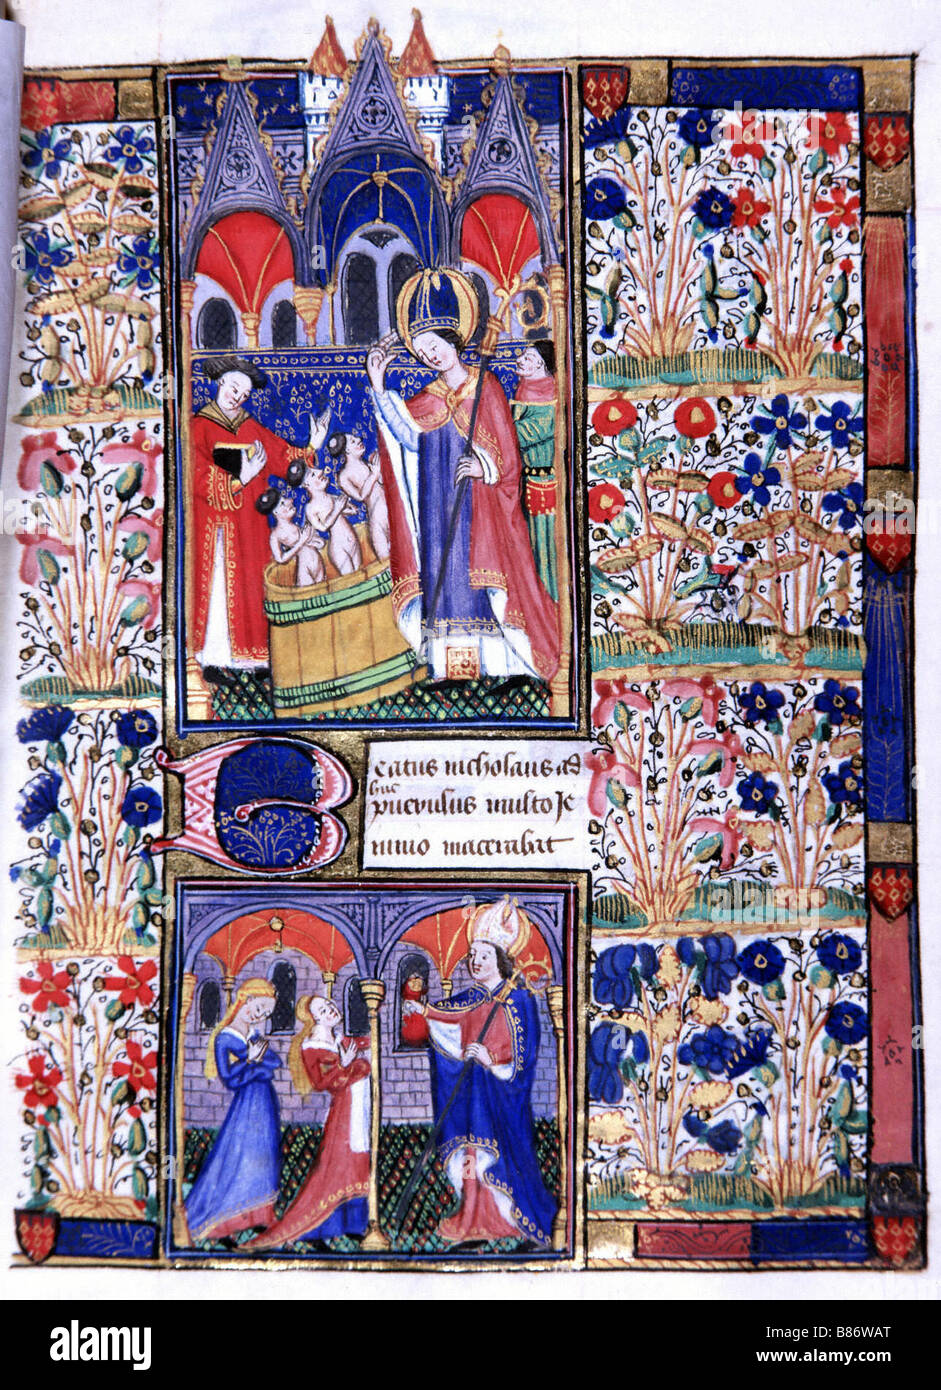 Beatus nicholaus adhuc
puerulus multo Je
iunio macerabat
alamy
Image ID: B86WAT
www.alamy.com